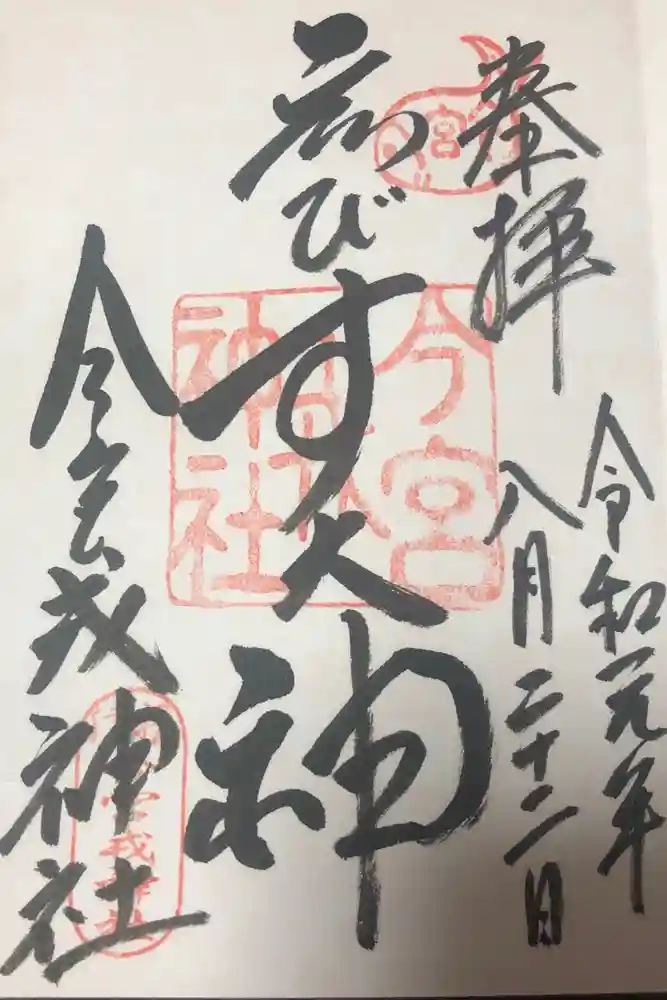 奉拝
令和元年
八月二十二日
ゑびす大神
今宮戎神社
今宮戎神社